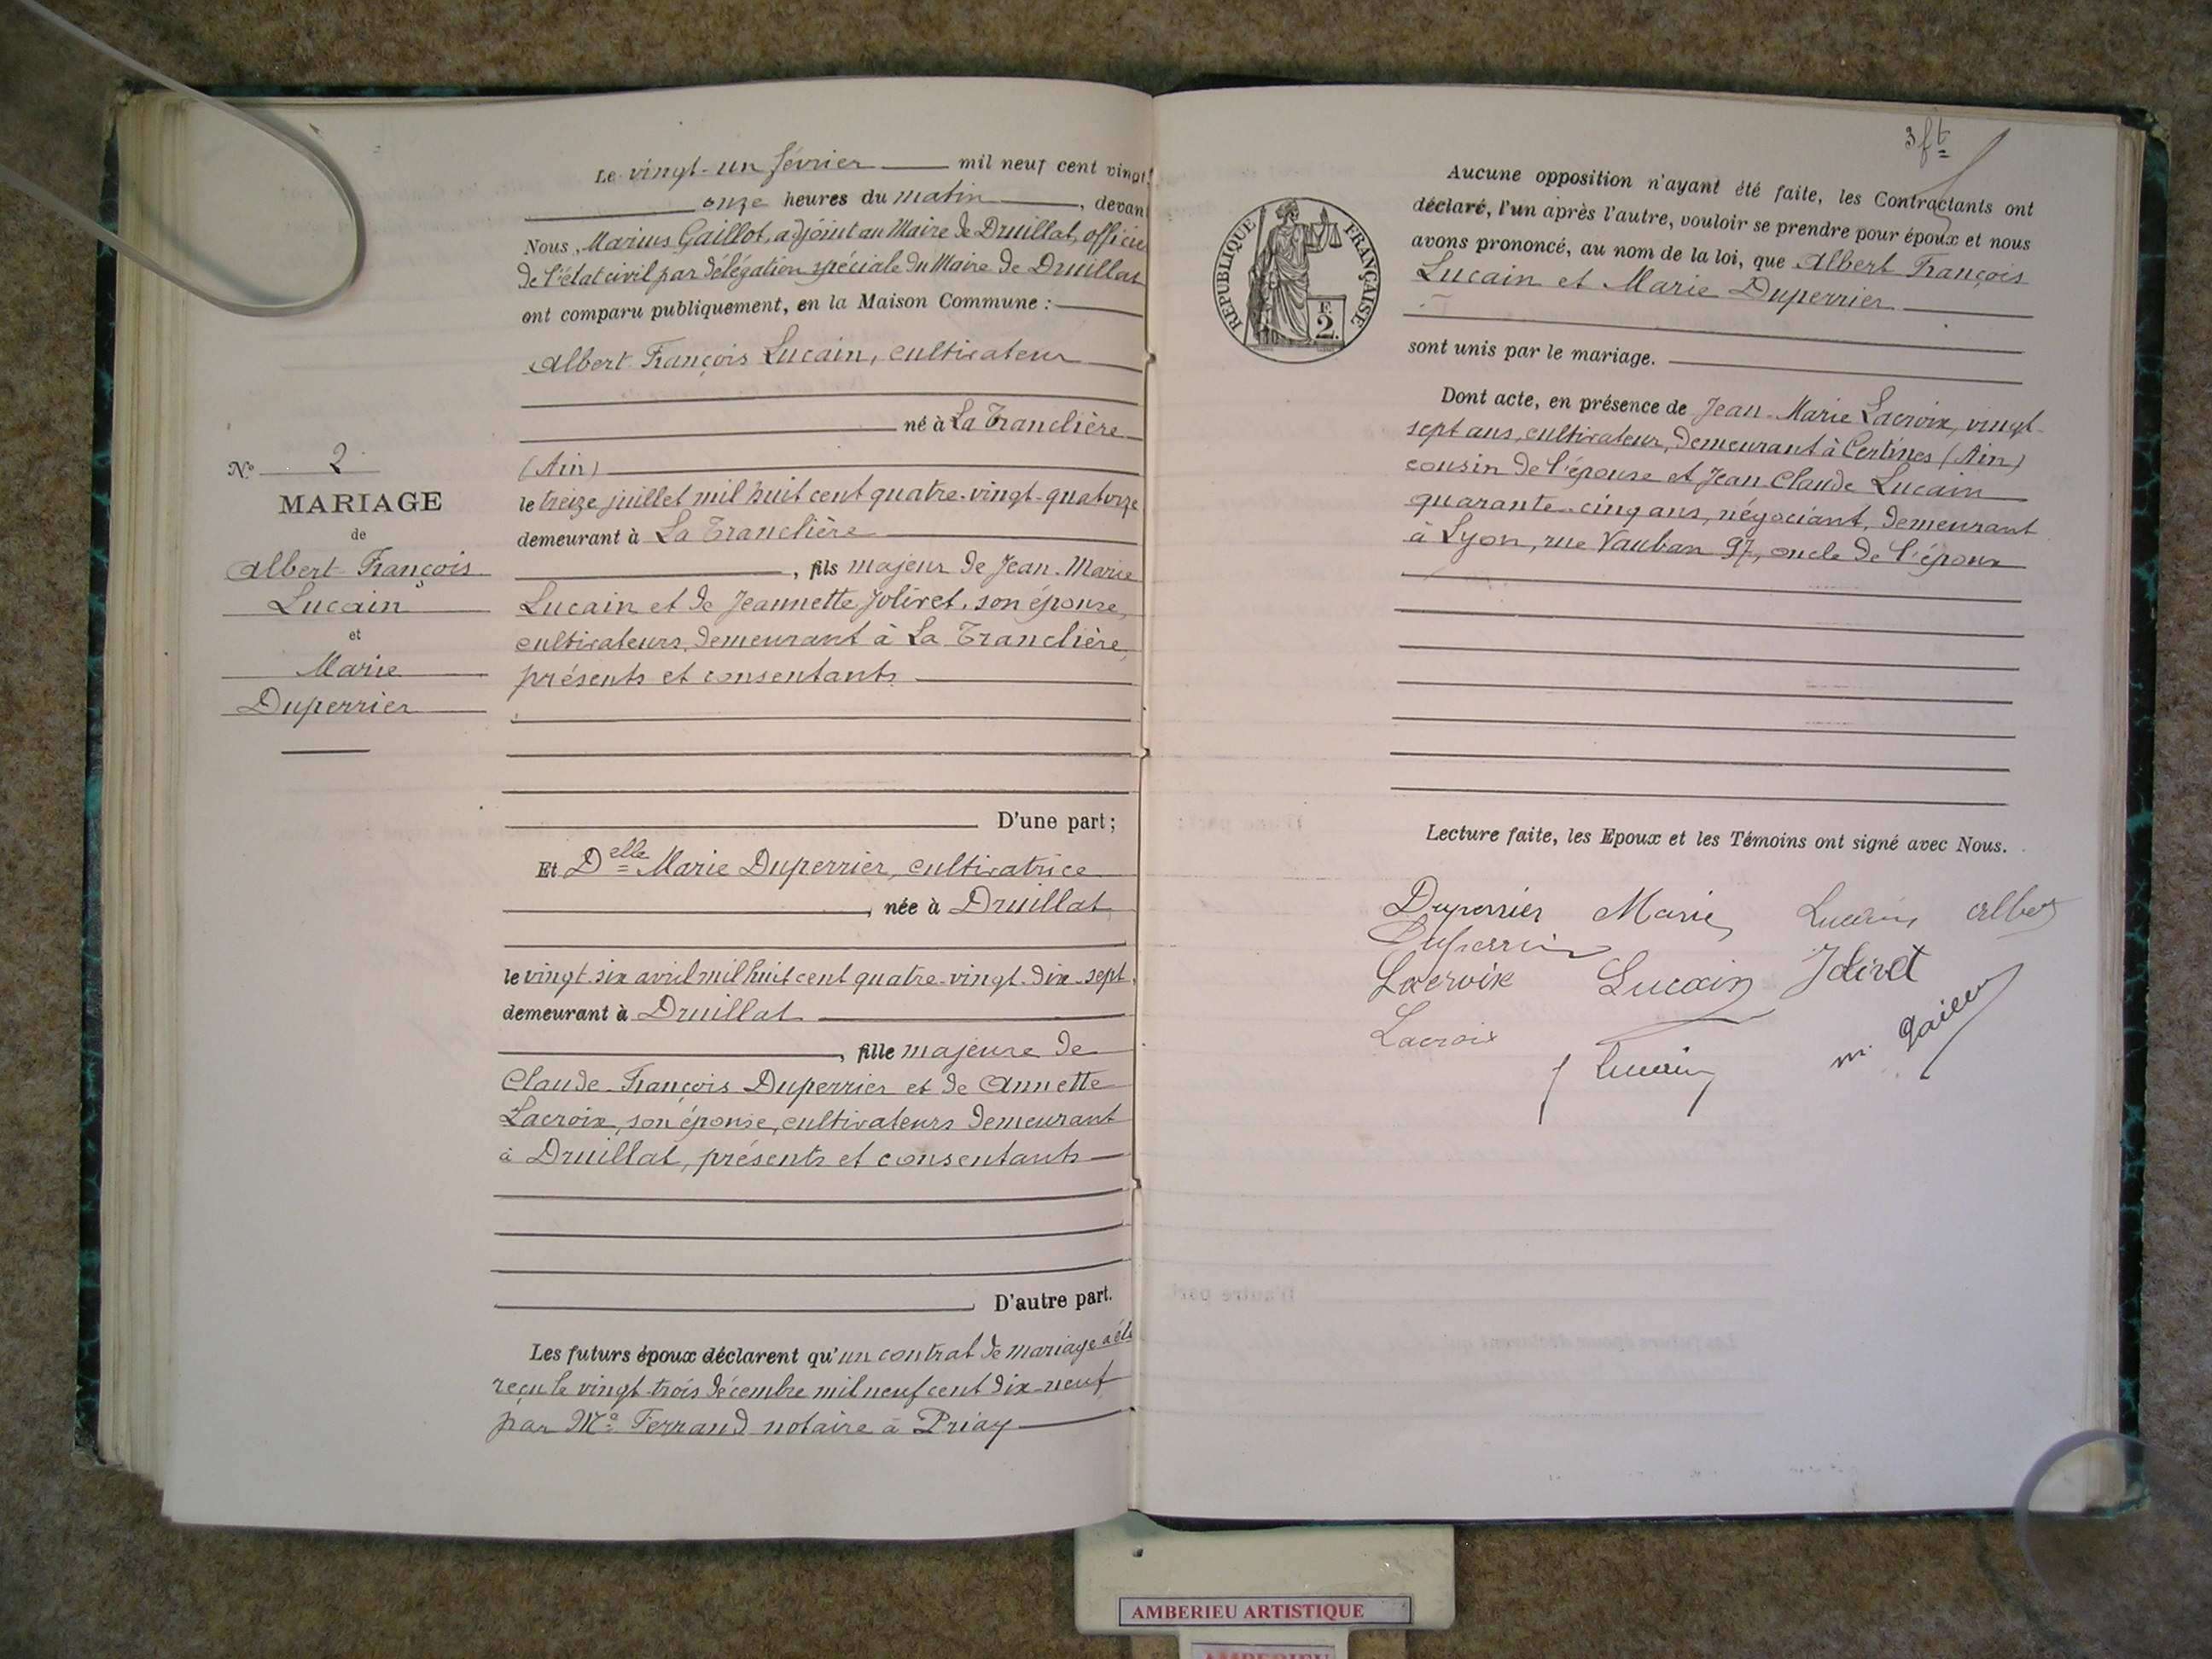 Le vingt-un février mil neuf cent vingt
onze heures du matin, devant
Nous, Marius Gaillot, adjoint au Maire de Druillat, officier
de l'état civil par délégation spéciale du Maire de Druillat
ont comparu publiquement, en la Maison Commune :
Albert François Lucain, cultivateur
né à La Tranclière
(Ain)
le treize juillet mil huit cent quatre-vingt-quatorze
demeurant à La Tranclière
, fils majeur de Jean-Marie
Lucain et de Jeannette Jolivet, son épouse,
cultivateurs, demeurant à La Tranclière,
présents et consentants
D'une part ;
Et Delle Marie Duperrier, cultivatrice
, née à Druillat
le vingt-six avril mil huit cent quatre-vingt-dix-sept,
demeurant à Druillat
, fille majeure de
Claude-François Duperrier et de Annette
Lacroix, son épouse, cultivateurs demeurant
à Druillat, présents et consentants
D'autre part.
Les futurs époux déclarent qu'un contrat de mariage a été
reçu le vingt-trois décembre mil neuf cent dix-neuf
par Me Ferrand notaire à Priay
No 2
MARIAGE
de
Albert François
Lucain
et
Marie
Duperrier
3 ft
RÉPUBLIQUE FRANÇAISE
F.
2.
Aucune opposition n'ayant été faite, les Contractants ont
déclaré, l'un après l'autre, vouloir se prendre pour époux et nous
avons prononcé, au nom de la loi, que Albert François
Lucain et Marie Duperrier
sont unis par le mariage.
Dont acte, en présence de Jean-Marie Lacroix, vingt-
sept ans, cultivateur, demeurant à Certines (Ain)
cousin de l'épouse et Jean Claude Lucain
quarante-cinq ans, négociant, demeurant
à Lyon, rue Vauban 97, oncle de l'époux
Lecture faite, les Epoux et les Témoins ont signé avec Nous.
Duperrier Marie Lucain Albert
Duperrier
Lacroix Lucain Jolivet
Lacroix
J Lucain
M. Gaillot
AMBERIEU ARTISTIQUE
AMBERIEU